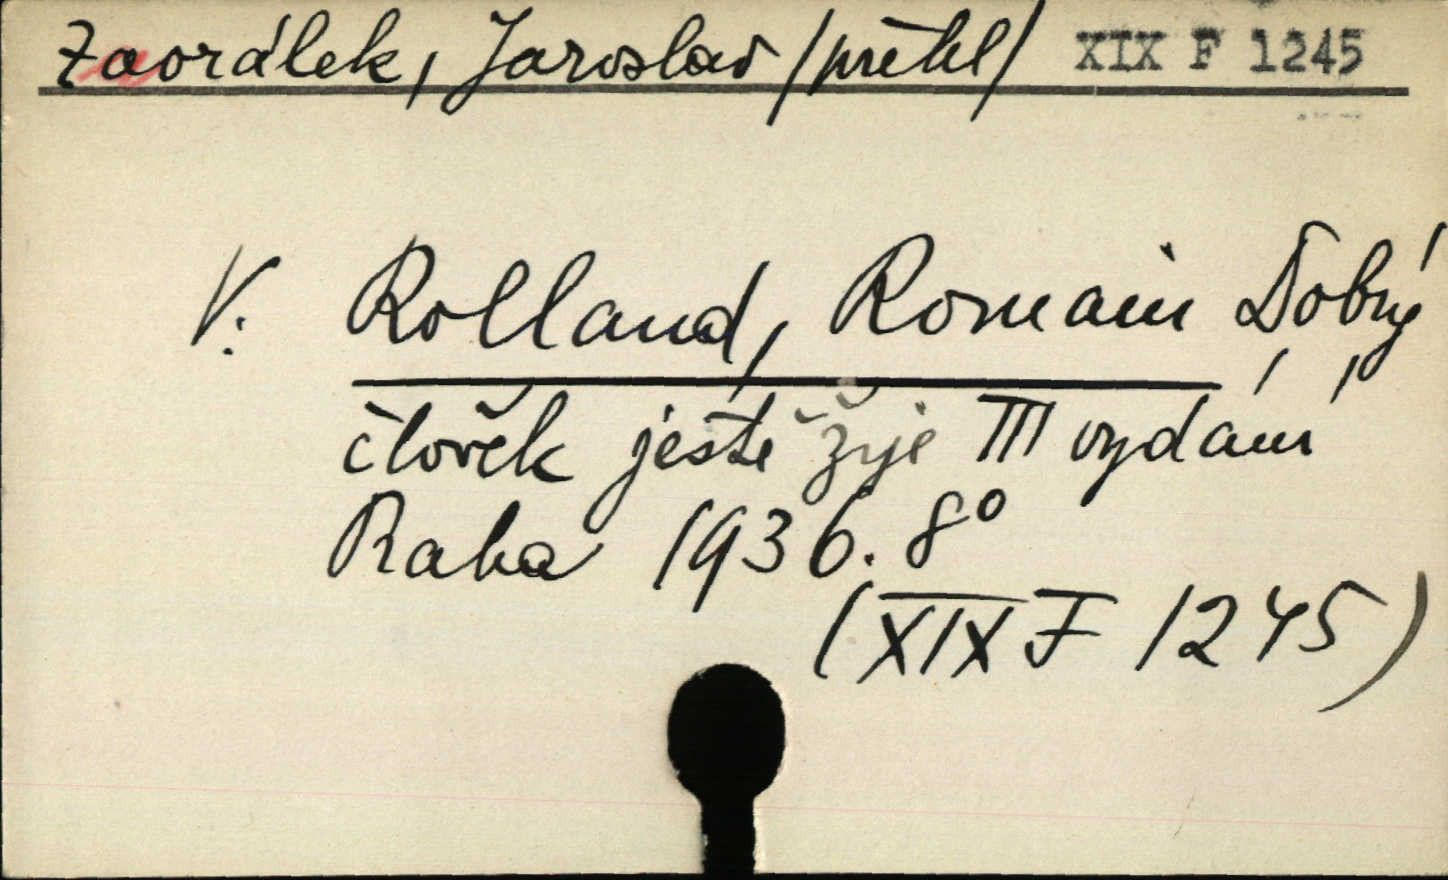 Zaorálek, Jaroslav /překl/ XIX F 1245
V. Rolland, Romain Dobrý
člověk ještě žije III vydání
Praha 1936. 8°
(XIX F 1245)